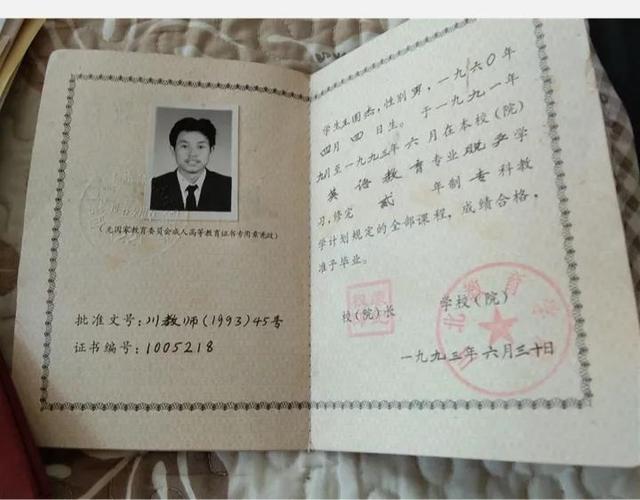 (无国家教育委员会成人高等教育证书专用章无效)
批准文号:川教师(1993)45号
证书编号:1005218
学生王国杰,性别男,一九六〇年
四月四日生。于一九九一年
九月至一九九三年六月在本校(院)
英语教育专业脱产学
习,修完贰年制专科教
学计划规定的全部课程,成绩合格,
准予毕业。
校(院)长 学校(院)
一九九三年六月三十日